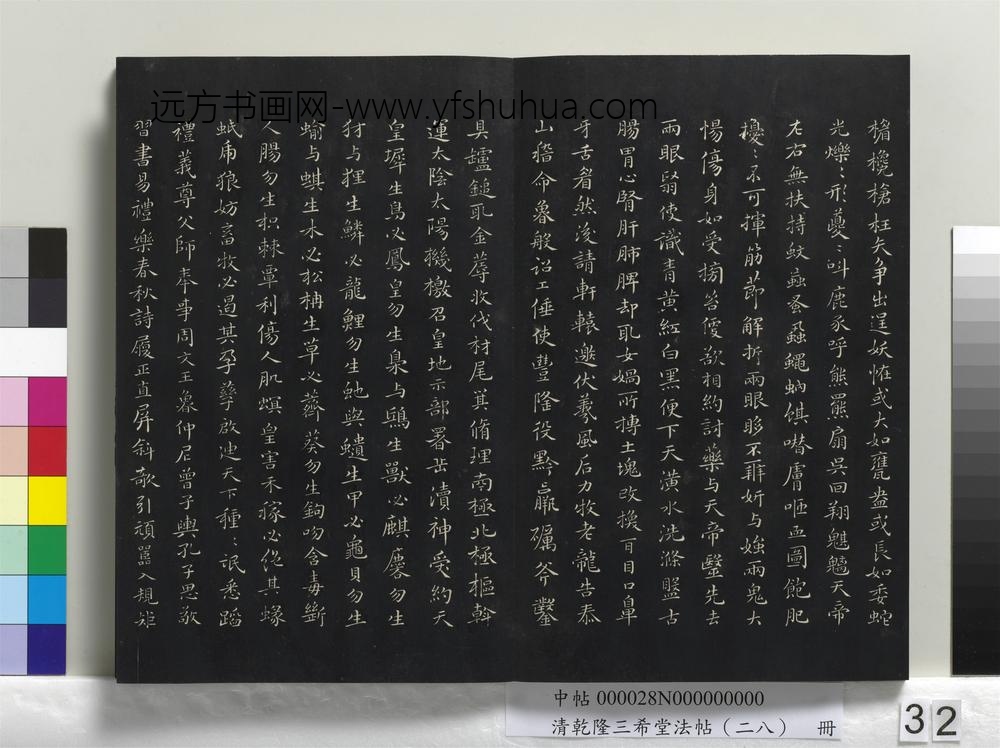 远方书画网-www.yfshuhua.com
欃槍枉矢爭出逞妖恠或大如甕盎或長如委蛇
光爍ミ形夔ミ叫鹿豕呼熊羆扇吳回翔魃魖天帝
左右無扶持蚊蝱蚤蝨蠅蚋蜞噆膚咂血圖飽肥
擾ミ不可揮筋節解折兩眼眵不辨妍与媸兩鬼大
惕傷身如受搒笞便欲相約討藥与天帝醫先去
兩眼翳使識青黃紅白黑便下天潢水洗滌盤古
腸胃心腎肝肺脾却取女媧所摶土塊改換耳目口鼻
牙舌眉然後請軒轅邀伏羲風后力牧老龍吉泰
山稽命魯般詔工倕使豐隆役黔羸礪斧鑿
具鑪鎚取金蓐收伐材尾箕脩理南極北極樞斡
運太陰太陽機檄召皇地示部署岳瀆神受約天
皇墀生鳥必鳳皇勿生梟与鴟生獸必麒麐勿生
豺与狸生鱗必龍鯉勿生虵與生甲必龜貝勿生
蝓与蜞生木必松柟生草必薺葵勿生鉤吻含毒斷
人腸勿生枳棘覃利傷人肌螟皇害禾稼必絕其蝝
蚳虎狼妨畜牧必遏其孕孳啟迪天下種ミ氓悉蹈
禮義尊父師奉事周文王魯仲尼曾子輿孔子思敬
習書易禮樂春秋詩履正直屏斜欹引頑嚚入規矩
中帖 000028N000000000
清乾隆三希堂法帖（二八） 冊
32